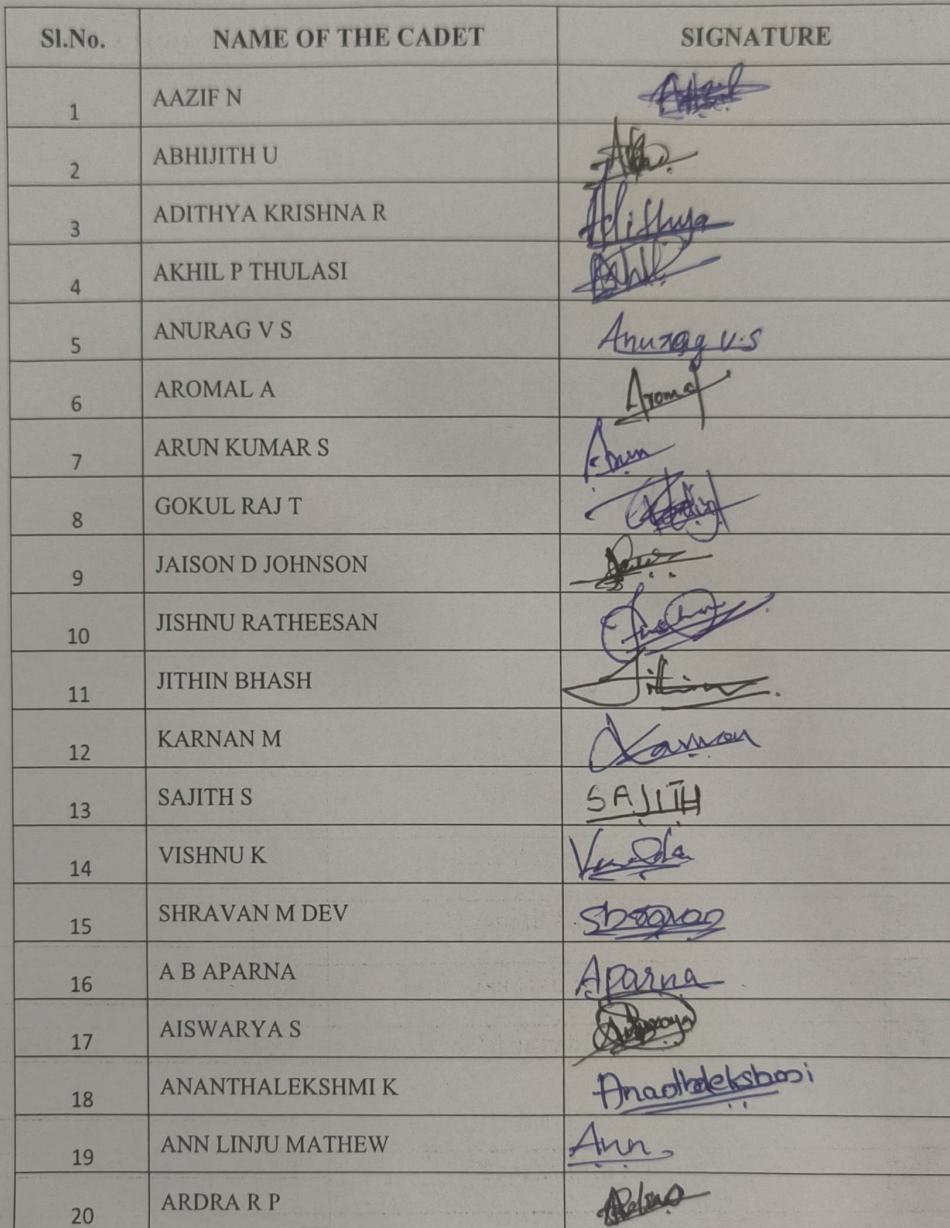 Sl.No. NAME OF THE CADET SIGNATURE
1 AAZIF N
2 ABHIJITH U
3 ADITHYA KRISHNA R Adithya
4 AKHIL P THULASI Akhil
5 ANURAG V S Anurag V.S
6 AROMAL A Aromal
7 ARUN KUMAR S Arun
8 GOKUL RAJ T
9 JAISON D JOHNSON
10 JISHNU RATHEESAN
11 JITHIN BHASH Jithin
12 KARNAN M Karnan
13 SAJITH S SAJITH
14 VISHNU K
15 SHRAVAN M DEV
16 A B APARNA Aparna
17 AISWARYA S
18 ANANTHALEKSHMI K
19 ANN LINJU MATHEW Ann
20 ARDRA R P